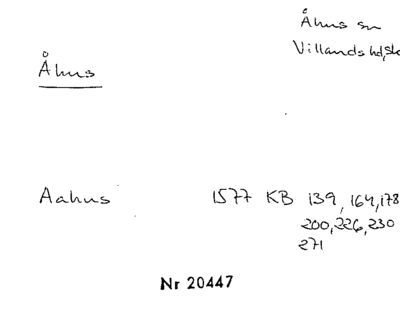 Åhus sn
Villands hd, Sk
Åhus
Aahus 1577 KB 139, 164, 178
200, 226, 230
271
Nr 20447